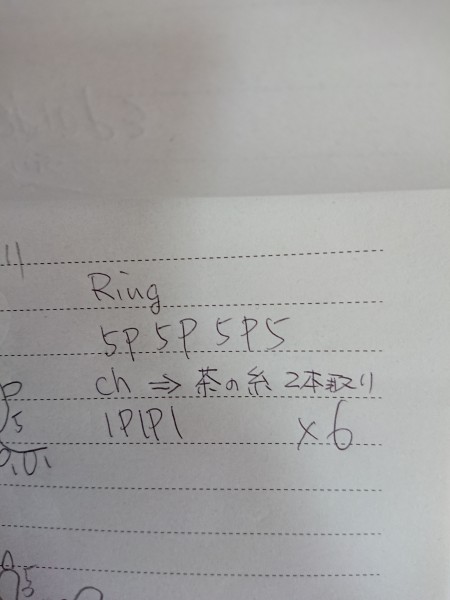 Ring
5P 5P 5P5
ch ⇒ 茶の糸 2本取り
1P1P1 ×6
5
5